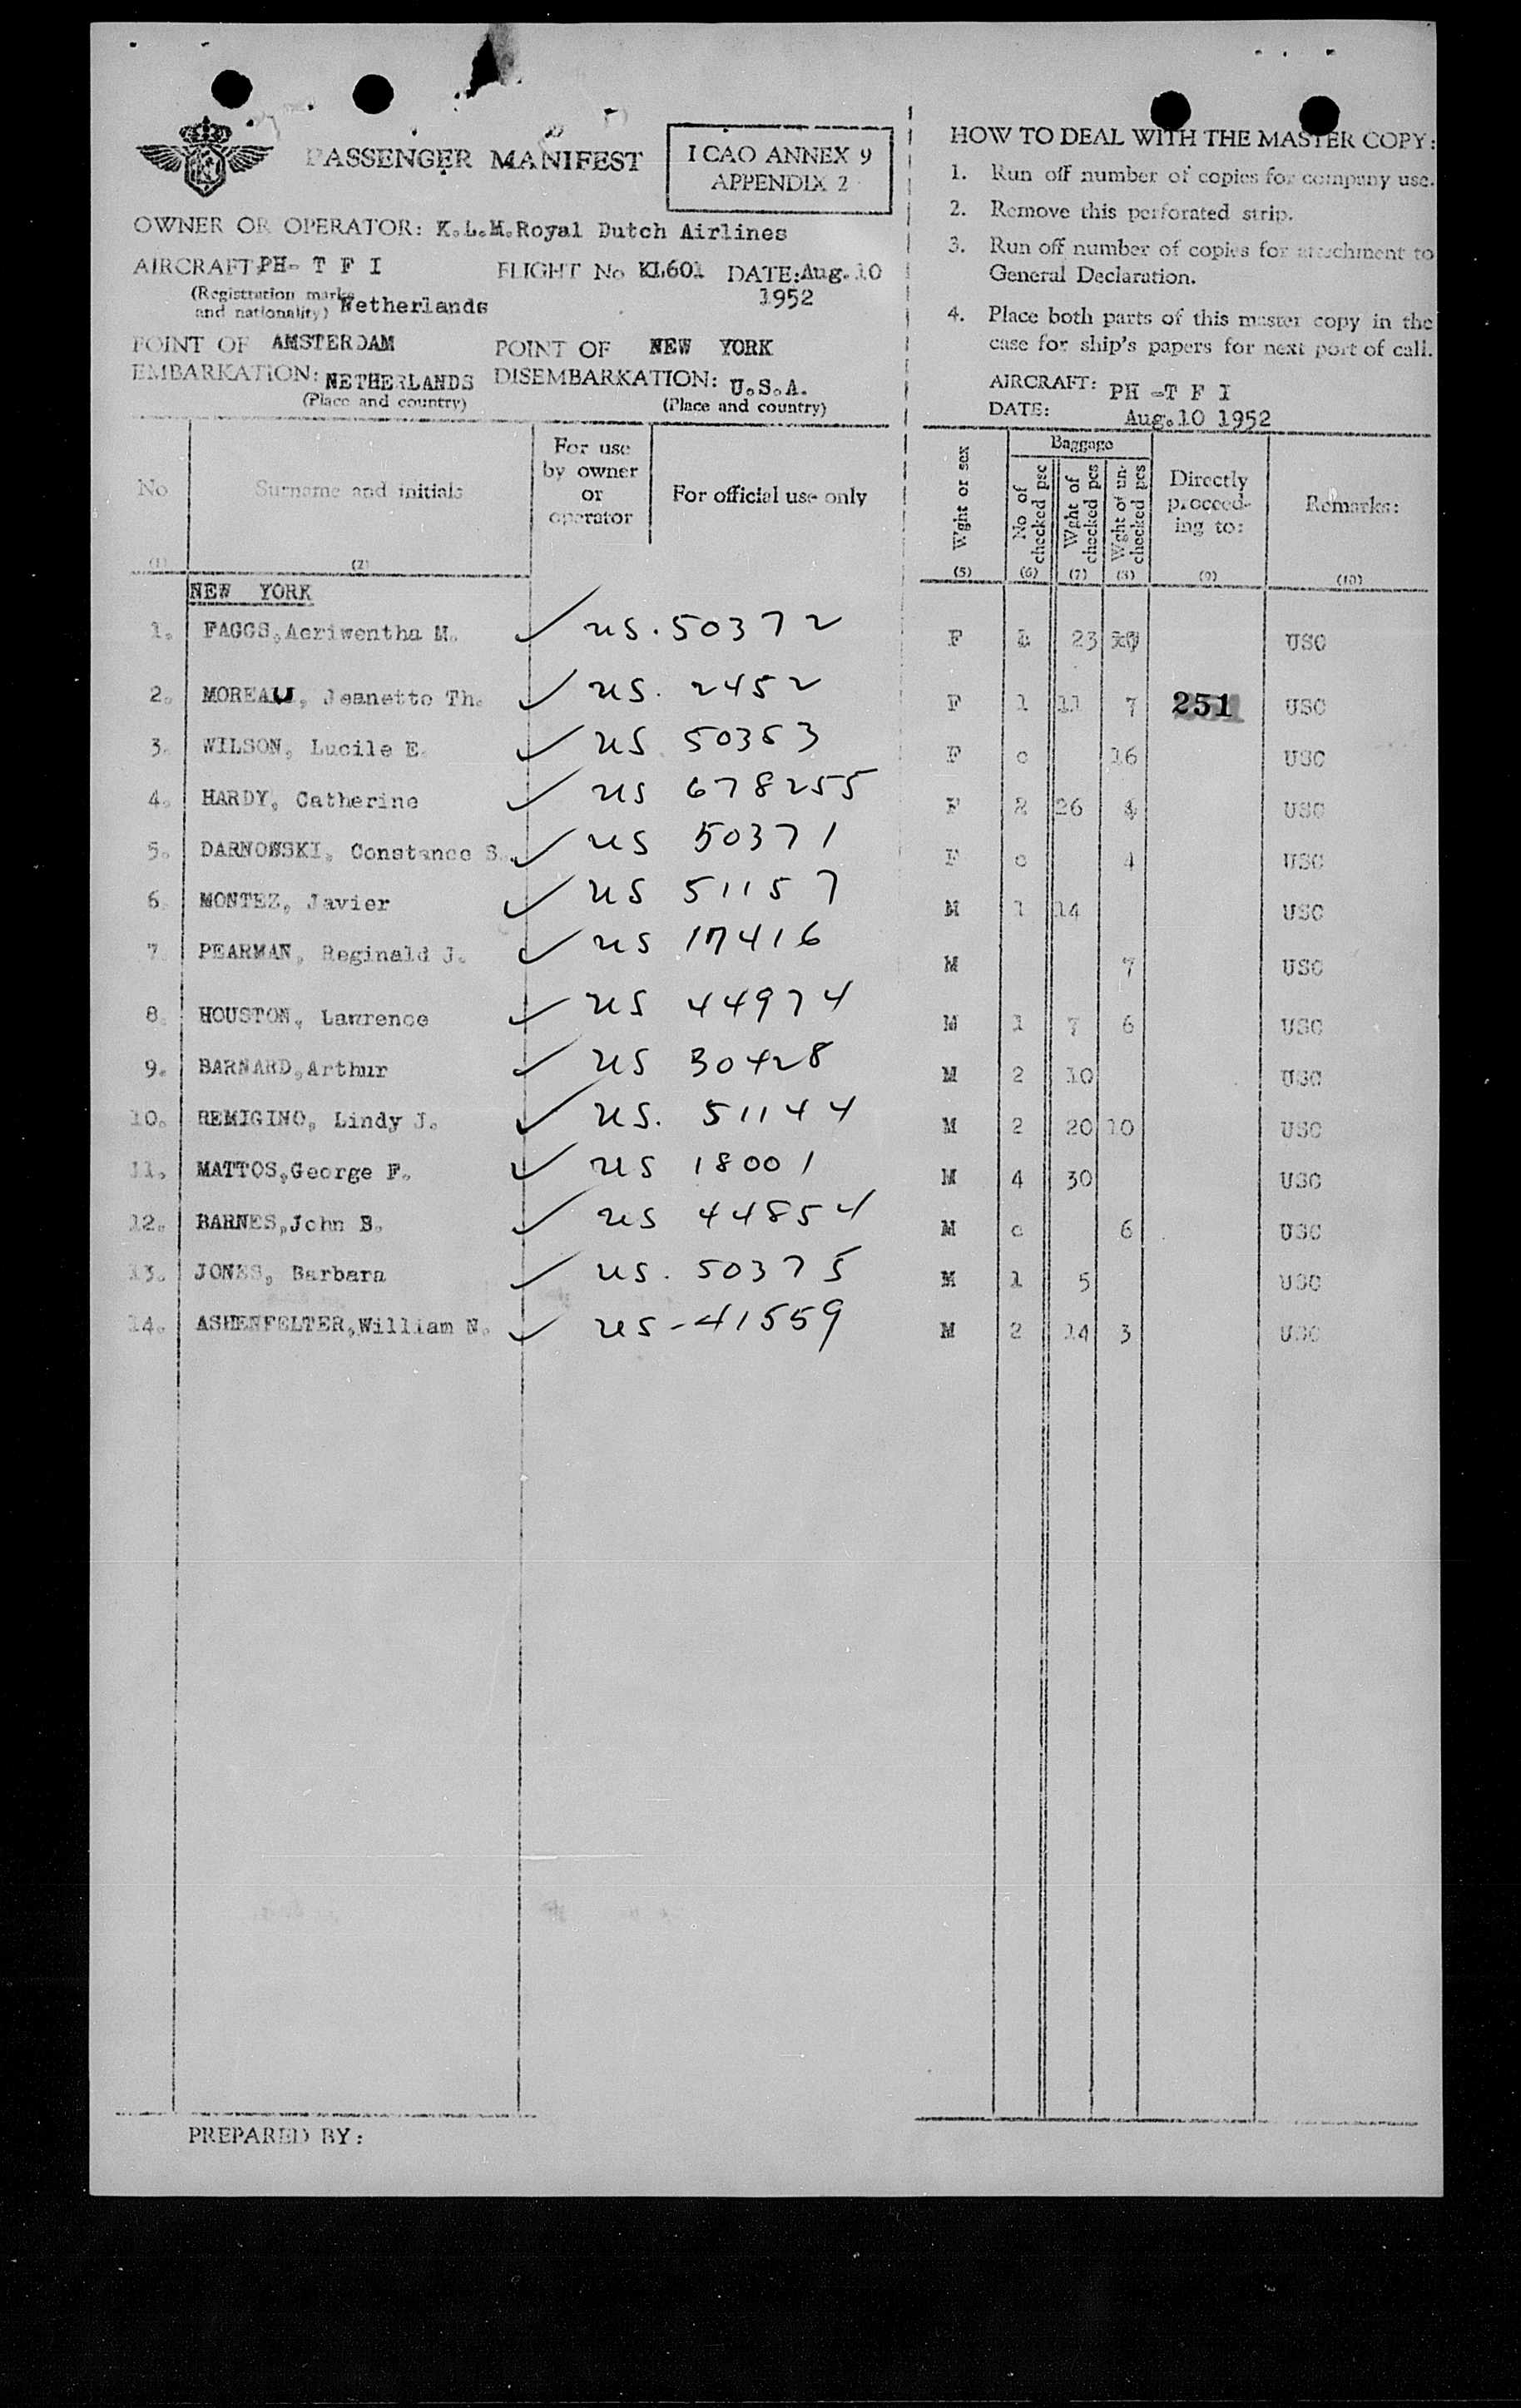 PASSENGER MANIFEST
I CAO ANNEX 9
APPENDIX 2
OWNER OR OPERATOR: K.L.M.Royal Dutch Airlines
AIRCRAFT: PH- T F I FLIGHT No KL601 DATE: Aug. 10
1952
(Registration marks
and nationality) Netherlands
POINT OF AMSTERDAM POINT OF NEW YORK
EMBARKATION: NETHERLANDS DISEMBARKATION: U.S.A.
(Place and country) (Place and country)
HOW TO DEAL WITH THE MASTER COPY:
1. Run off number of copies for company use.
2. Remove this perforated strip.
3. Run off number of copies for attachment to
General Declaration.
4. Place both parts of this master copy in the
case for ship's papers for next port of call.
AIRCRAFT: PH -T F I
DATE: Aug.10 1952
No Surname and initials For use by owner or operator For official use only Wght or sex Baggage No of checked psc Wght of checked pcs Wght of un-checked pcs Directly proceed-ing to: Remarks:
(1) (2) (5) (6) (7) (8) (9) (10)
NEW YORK
1. FAGGS,Aeriwentha M. ✓ US. 50372 F 23 USC
2. MOREAU, Jeanette Th. ✓ US. 2452 F 1 11 7 251 USC
3. WILSON, Lucile E. ✓ US 50353 F 0 16 USC
4. HARDY, Catherine ✓ US 678255 F 2 26 4 USC
5. DARNOWSKI, Constance S. ✓ US 50371 F 0 4 USC
6. MONTEZ, Javier ✓ US 51157 M 1 14 USC
7. PEARMAN, Reginald J. ✓ US 17416 M 7 USC
8. HOUSTON, Lawrence ✓ US 44974 M 1 7 6 USC
9. BARNARD,Arthur ✓ US 30428 M 2 10 USC
10. REMIGINO, Lindy J. ✓ US. 51144 M 2 20 10 USC
11. MATTOS,George F. ✓ US 18001 M 4 30 USC
12. BARNES,John B. ✓ US 44854 M 0 6 USC
13. JONES, Barbara ✓ US. 50375 M 1 5 USC
14. ASHENFELTER,William N. ✓ US-41559 M 2 14 3 USC
PREPARED BY: